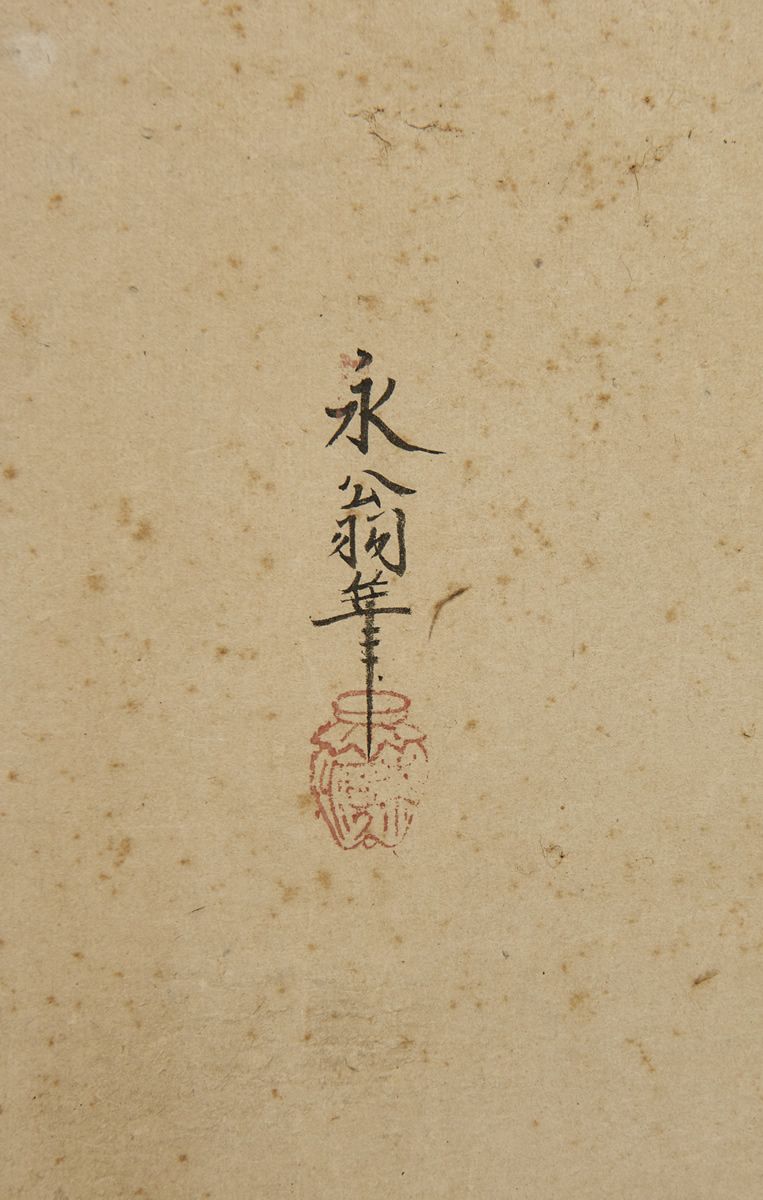 永翁筆